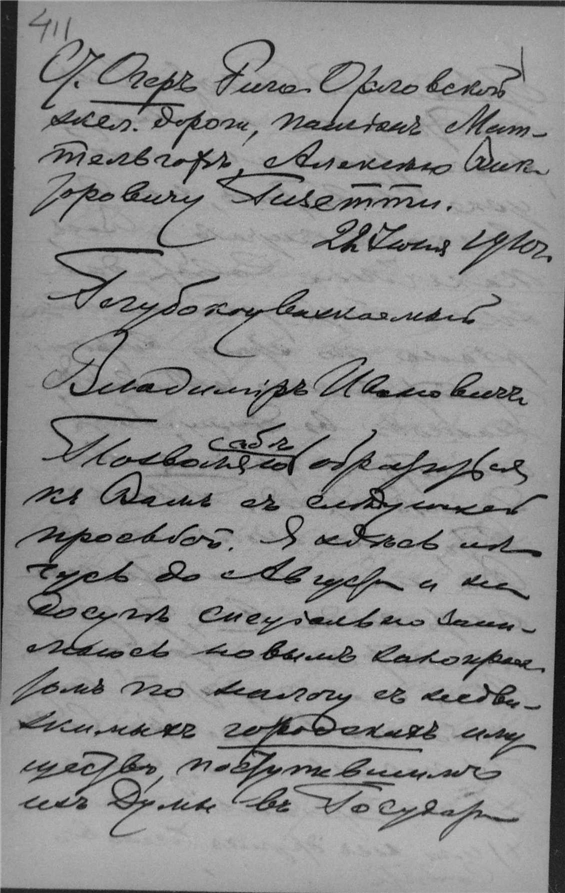 411
Ст. Огеръ Риго-Орловской
жел. дороги, пансiонъ Мат-
тельгофъ, Алексѣю Вик
торовичу Пичетти.
22 Iюня 1910 г.
Глубокоуважаемый
Владимiръ Ивановичъ
себѣ
Позволяю обратиться
къ Вамъ съ слѣдующей
просьбой. Я здѣсь лѣ
чусь до Августа и на
досугѣ спецiально зани-
маюсь новымъ законопроек
томъ по налогу съ недви-
жимыхъ городскихъ иму
ществъ, поступившимъ
изъ Думы въ Государ